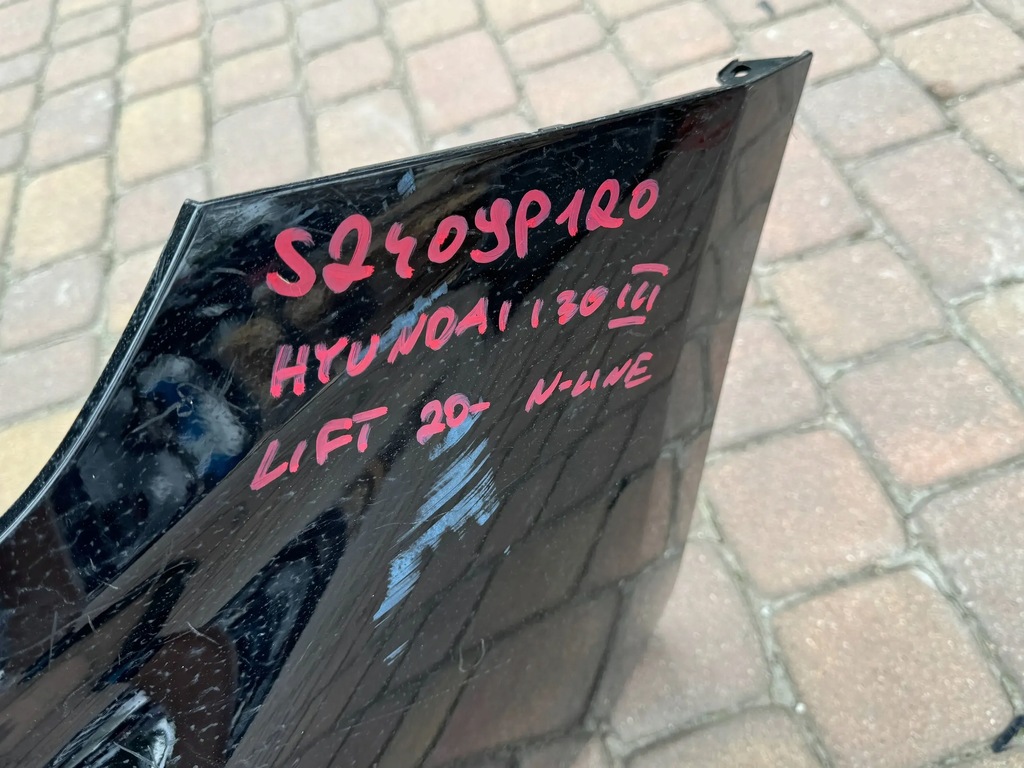 S240YP120
HYUNDAI I30 III
LIFT 20- N-LINE